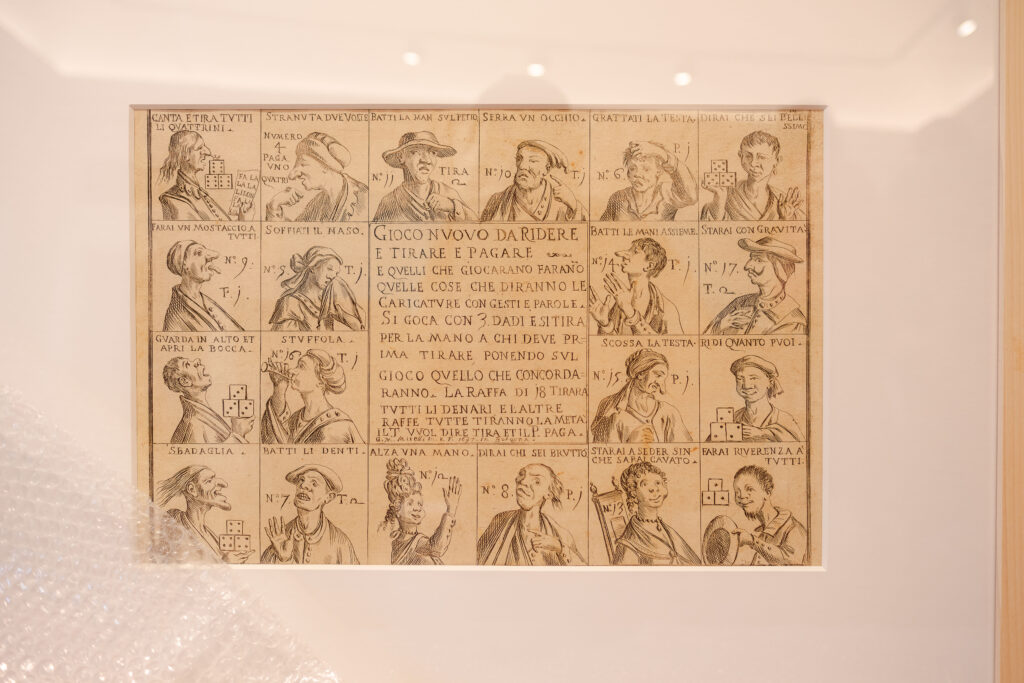 CANTA E TIRA TVTTI
LI QVATTRINI.
FA LA
LA LA
STRANVTA DVE VOLTE
NVMERO
4
PAGA
VNO
QVATRI
BATTI LA MAN SVL PETTO
No. 11
TIRA
2
SERRA VN OCCHIO.
No. 10
T. j
GRATTATI LA TESTA.
No. 6.
P. j
DIRAI CHE SEI BELL
ISSIMO
FARAI VN MOSTACCIO A
TVTTI.
No. 9.
P. j.
SOFFIATI IL NASO.
No. 5
T. j
GIOCO NVOVO DA RIDERE
E TIRARE E PAGARE
E QVELLI CHE GIOCARANO FARANO
QVELLE COSE CHE DIRANNO LE
CARICATVRE CON GESTI E PAROLE.
SI GOCA CON 3. DADI E SI TIRA
PER LA MANO A CHI DEVE PR=
IMA TIRARE PONENDO SVL
GIOCO QVELLO CHE CONCORDA=
RANNO. LA RAFFA DI 18 TIRARA
TVTTI LI DENARI E L ALTRE
RAFFE TVTTE TIRANNO LA META
IL T VVOL DIRE TIRA ET IL P. PAGA.
BATTI LE MANI ASSIEME.
No. 14
P. j.
STARAI CON GRAVITA
No. 17.
T. 2
GVARDA IN ALTO ET
APRI LA BOCCA.
STVFFOLA.
No. 16
T. j
SCOSSA LA TESTA.
No. 15
P. j.
RIDI QVANTO PVOI.
SBADAGLIA.
BATTI LI DENTI.
No. 7
T. 2
ALZA VNA MANO.
No. 12
DIRAI CHI SEI BRVTTO
No. 8.
P. j
STARAI A SEDER SIN
CHE SARAI CAVATO.
No. 13
FARAI RIVERENZA A
TVTTI.